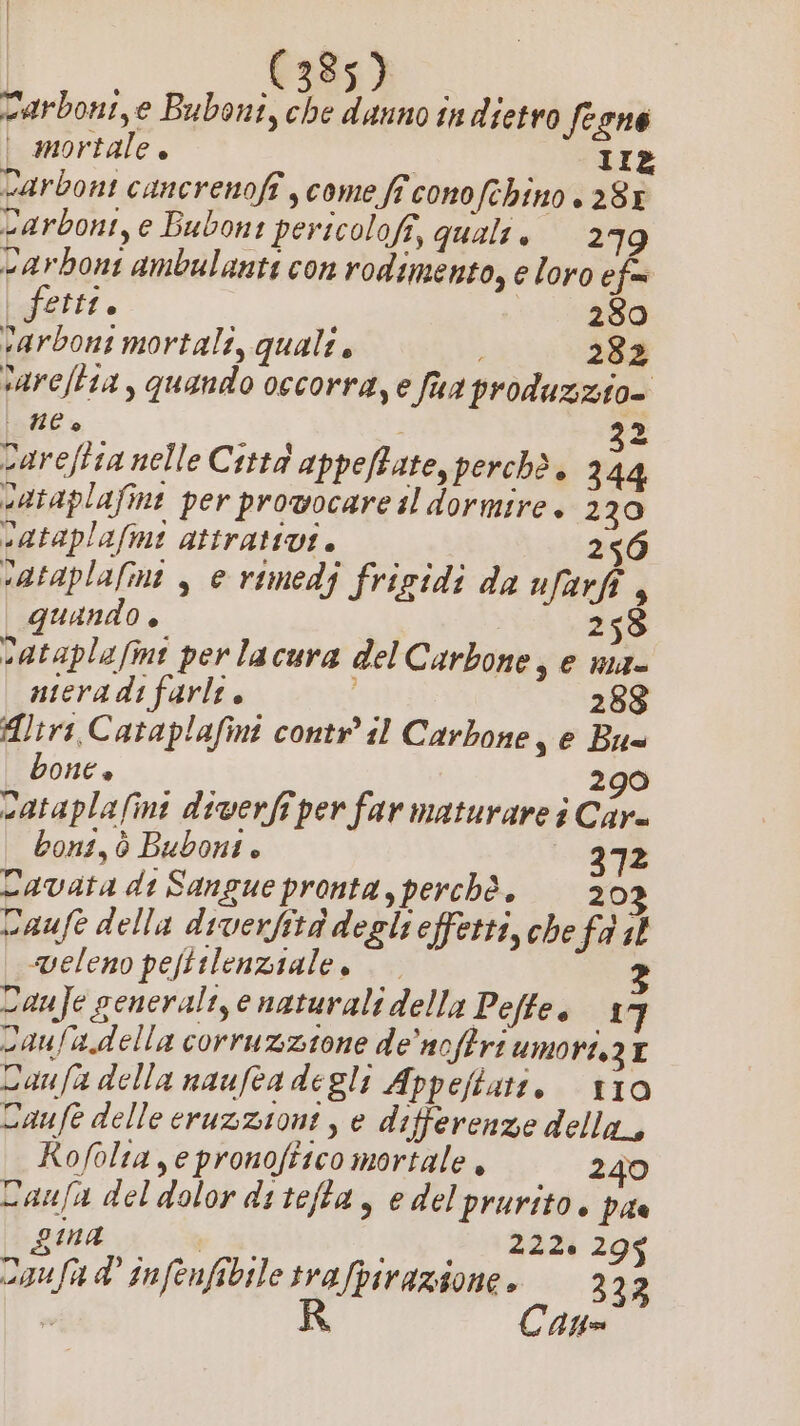 (385)
Carboni, e Buboni, che danno in dietro ſegno
mortale. 112
Carboni cancrenoſi, come ſi conoſchino. 281
Carboni, e Buboni pericoloſi, quali. 279
Carboni ambulanti con rodimento, e loro ef-
fetti. 280
Carboni mortali, quali. 282
Careſtia, quando occorra, e ſua produzzio-
ne. 32
Careſtia nelle Città appeſtate, perchè. 344
Cataplaſmi per provocare il dormire. 230
Cataplaſmi attrativi. 256
Cataplaſmi, e rimedj frigidi da uſarſi,
quando. 258
Cataplaſmi per la cura del Carbone, e ma-
niera di farli. 288
Altri Cataplaſmi contr' il Carbone, e Bu-
bone. 290
Cataplaſmi diverſi per far maturare i Car-
boni, ò Buboni. 372
Cavata di Sangue pronta, perchè. 203
Cauſe della diverſità degli effetti, che fà il
veleno peſtilenziale. 3
Cauſe generali, e naturali della Peſte. 17
Cauſa della corruzzione de' noſtri umori. 31
Cauſa della nauſea degli Appeſtati. 110
Cauſe delle eruzzioni, e differenze della
Roſolia, e pronoſtico mortale. 240
Cauſa del dolor di teſta, e del prurito. pa-
gina 222. 295
Cauſa d' inſenſibile traſpirazione. 333
R Cau-